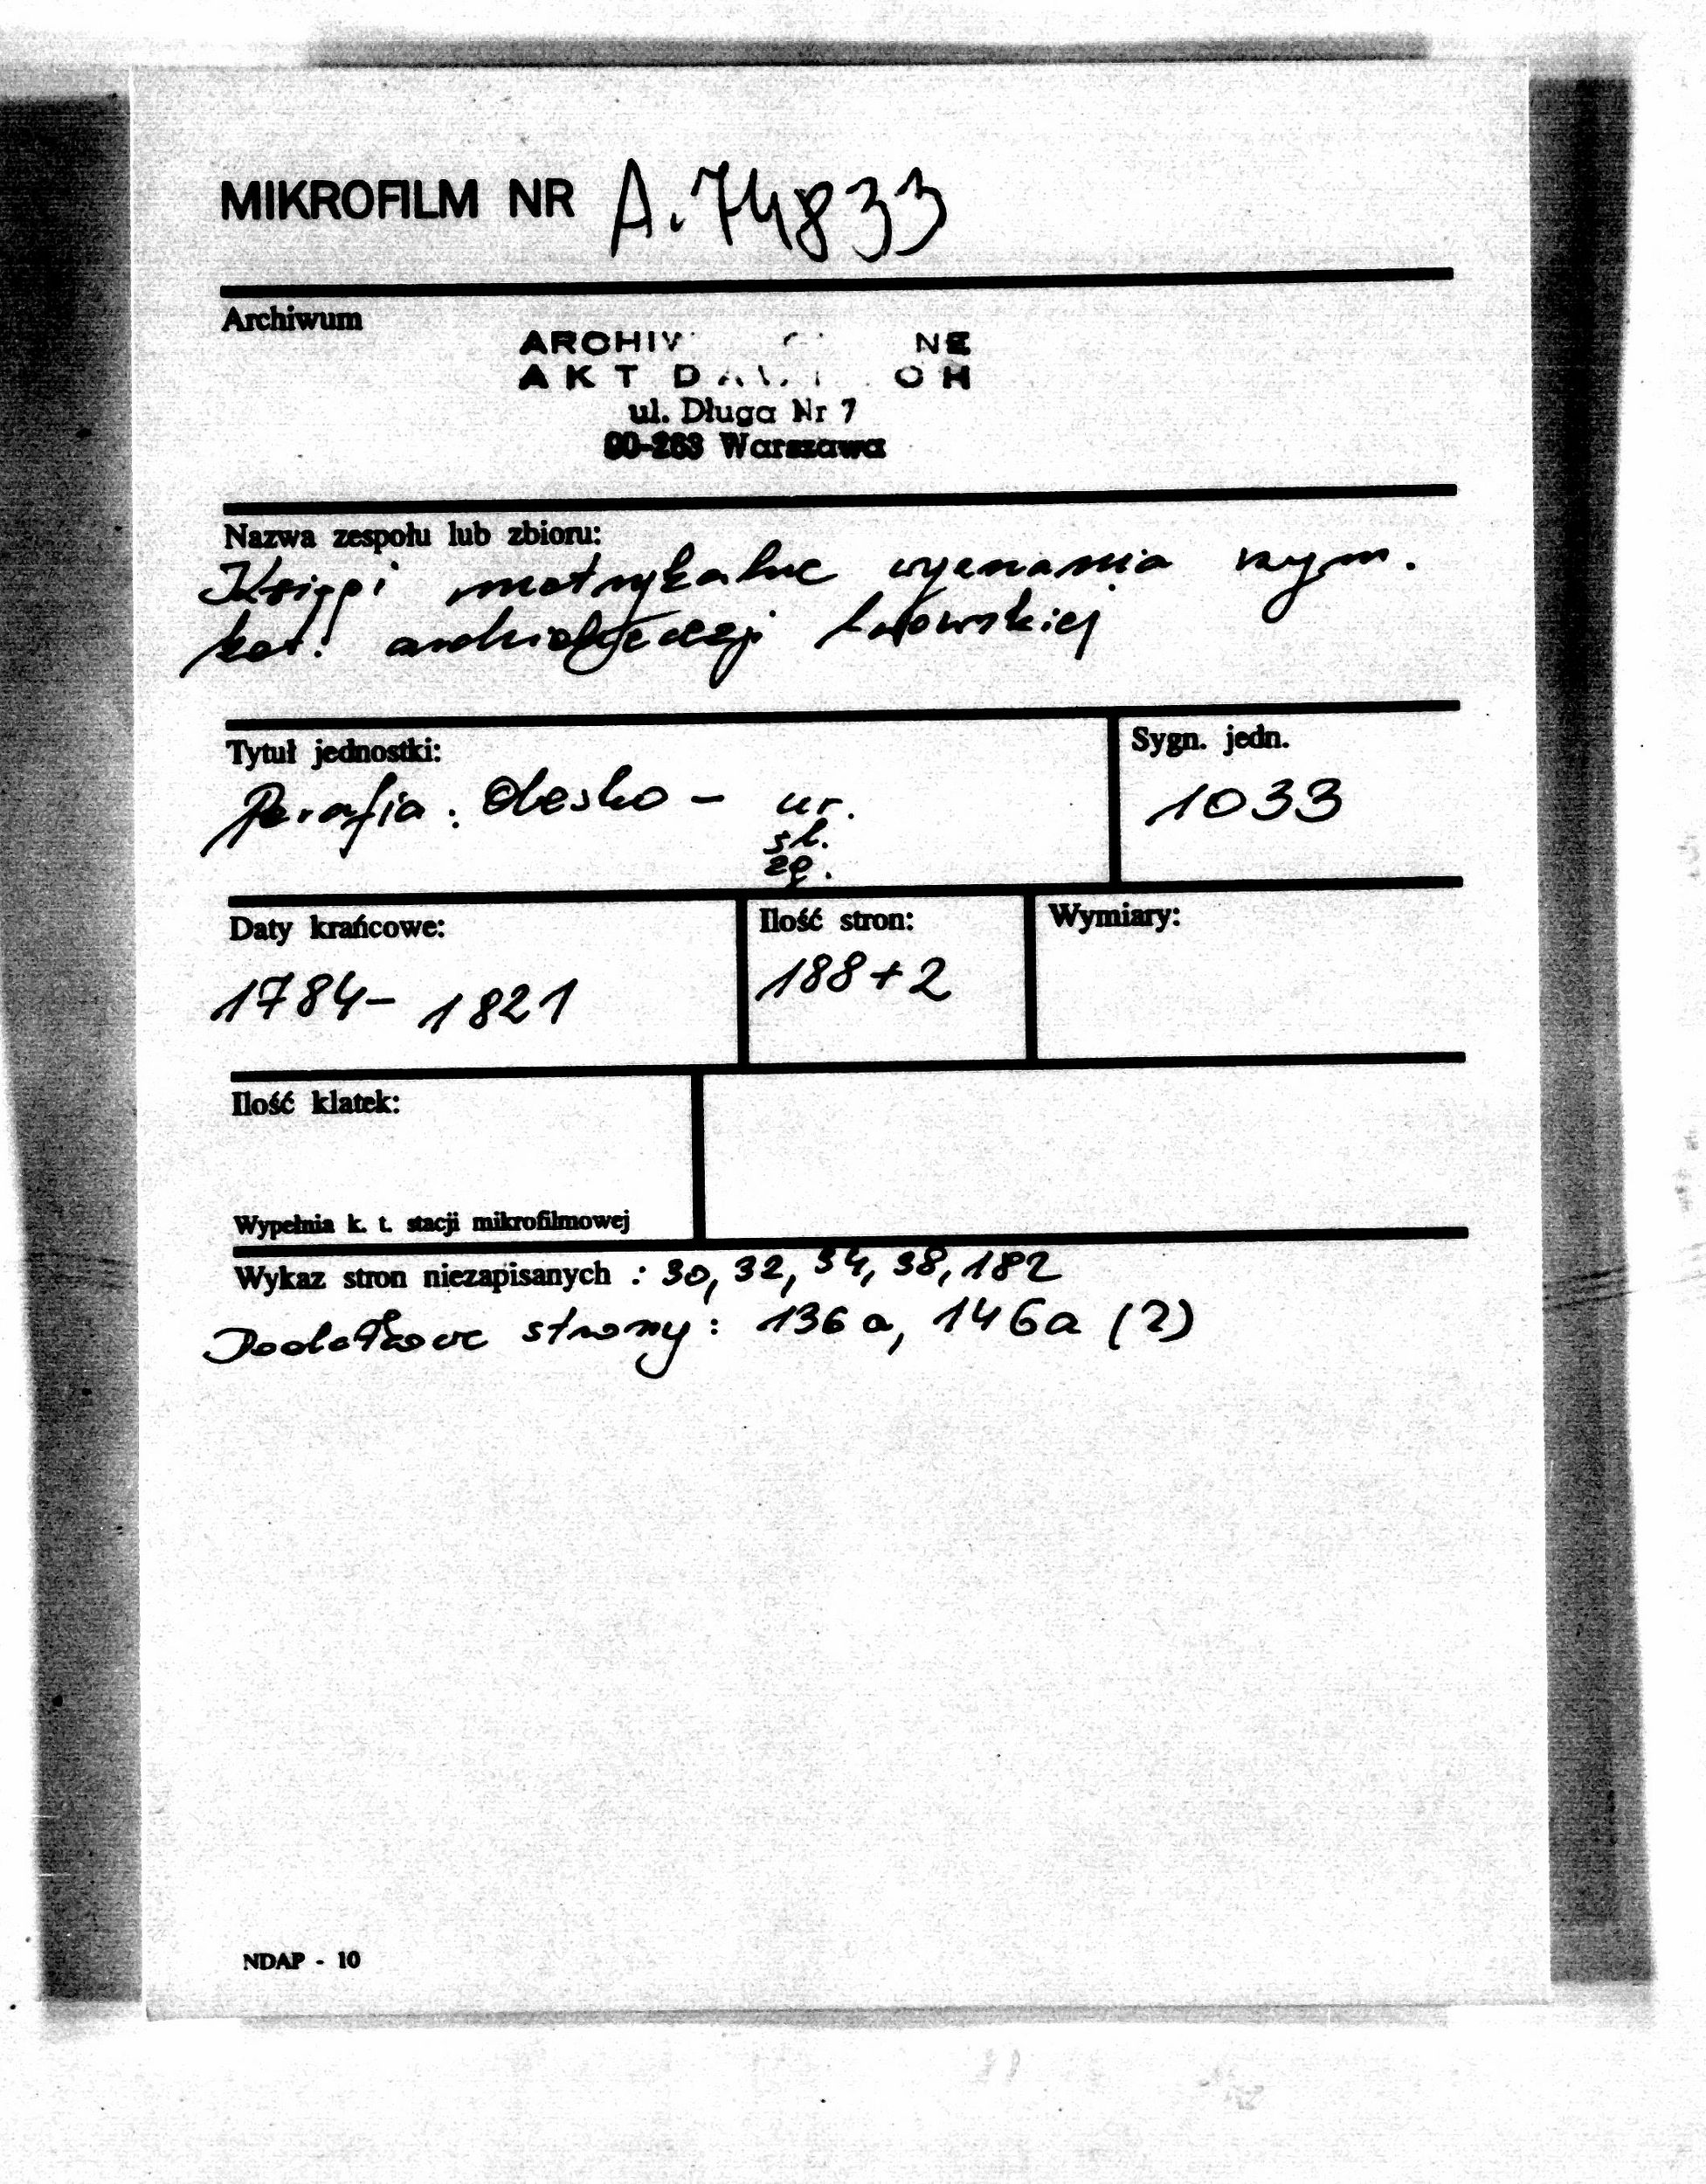 MIKROFILM NR A.74833
Archiwum
NE
AKT
ul. Długa Nr 7
00-263 Warszawa
Nazwa zespołu lub zbioru:
Księgi metrykalne wyznania rzym.
kat. archidiecezji Lwowskiej
Tytuł jednostki:
Sygn. jedn.
Parafia: Olesko - ur.
śl.
zg.
1033
Daty krańcowe:
Ilość stron:
Wymiary:
1784- 1821
188+2
Ilość klatek:
Wypełnia k. t. stacji mikrofilmowej
Wykaz stron niezapisanych : 30, 32, 34, 38, 182
Dodatkowe strony: 136a, 146a (2)
NDAP - 10